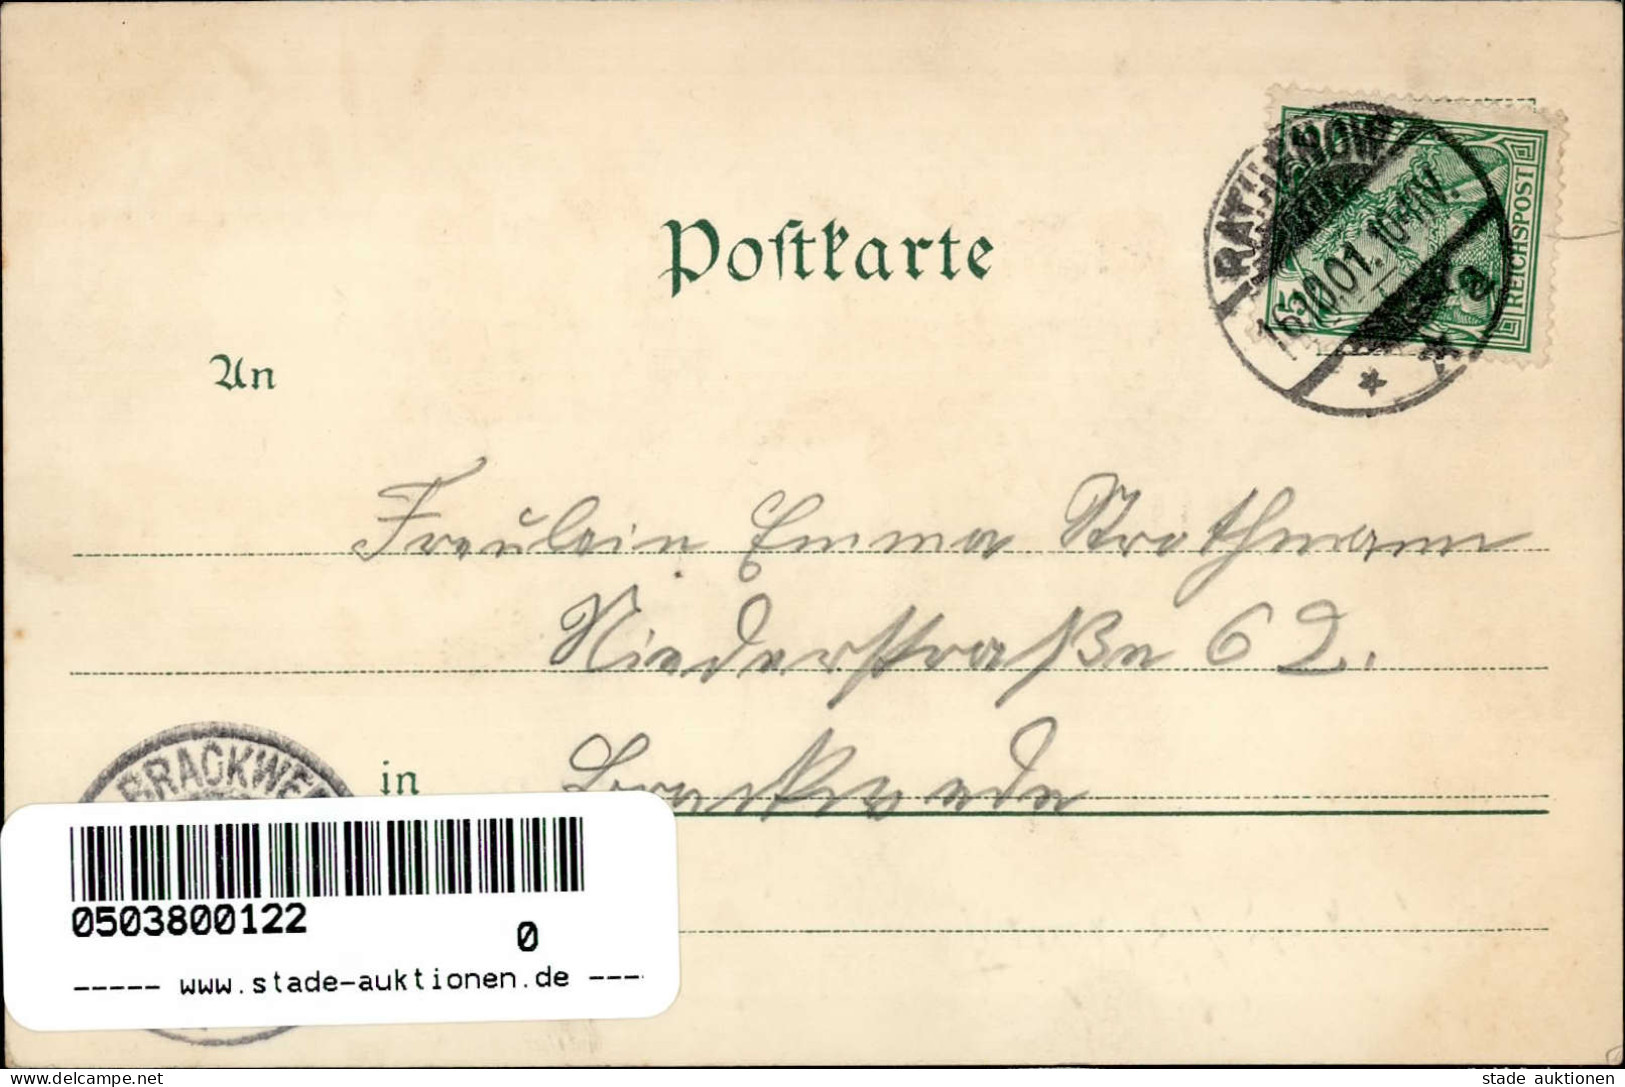 Postkarte
RATHENOW
16.10.01. 10-11V.
* a *
REICHSPOST
5
An
Fräulein Emma Strothmann
Niederstraße 62.
in Brackwede
BRACKWE
0503800122
0
----- www.stade-auktionen.de ----
www.delcampe.net
stade auktionen